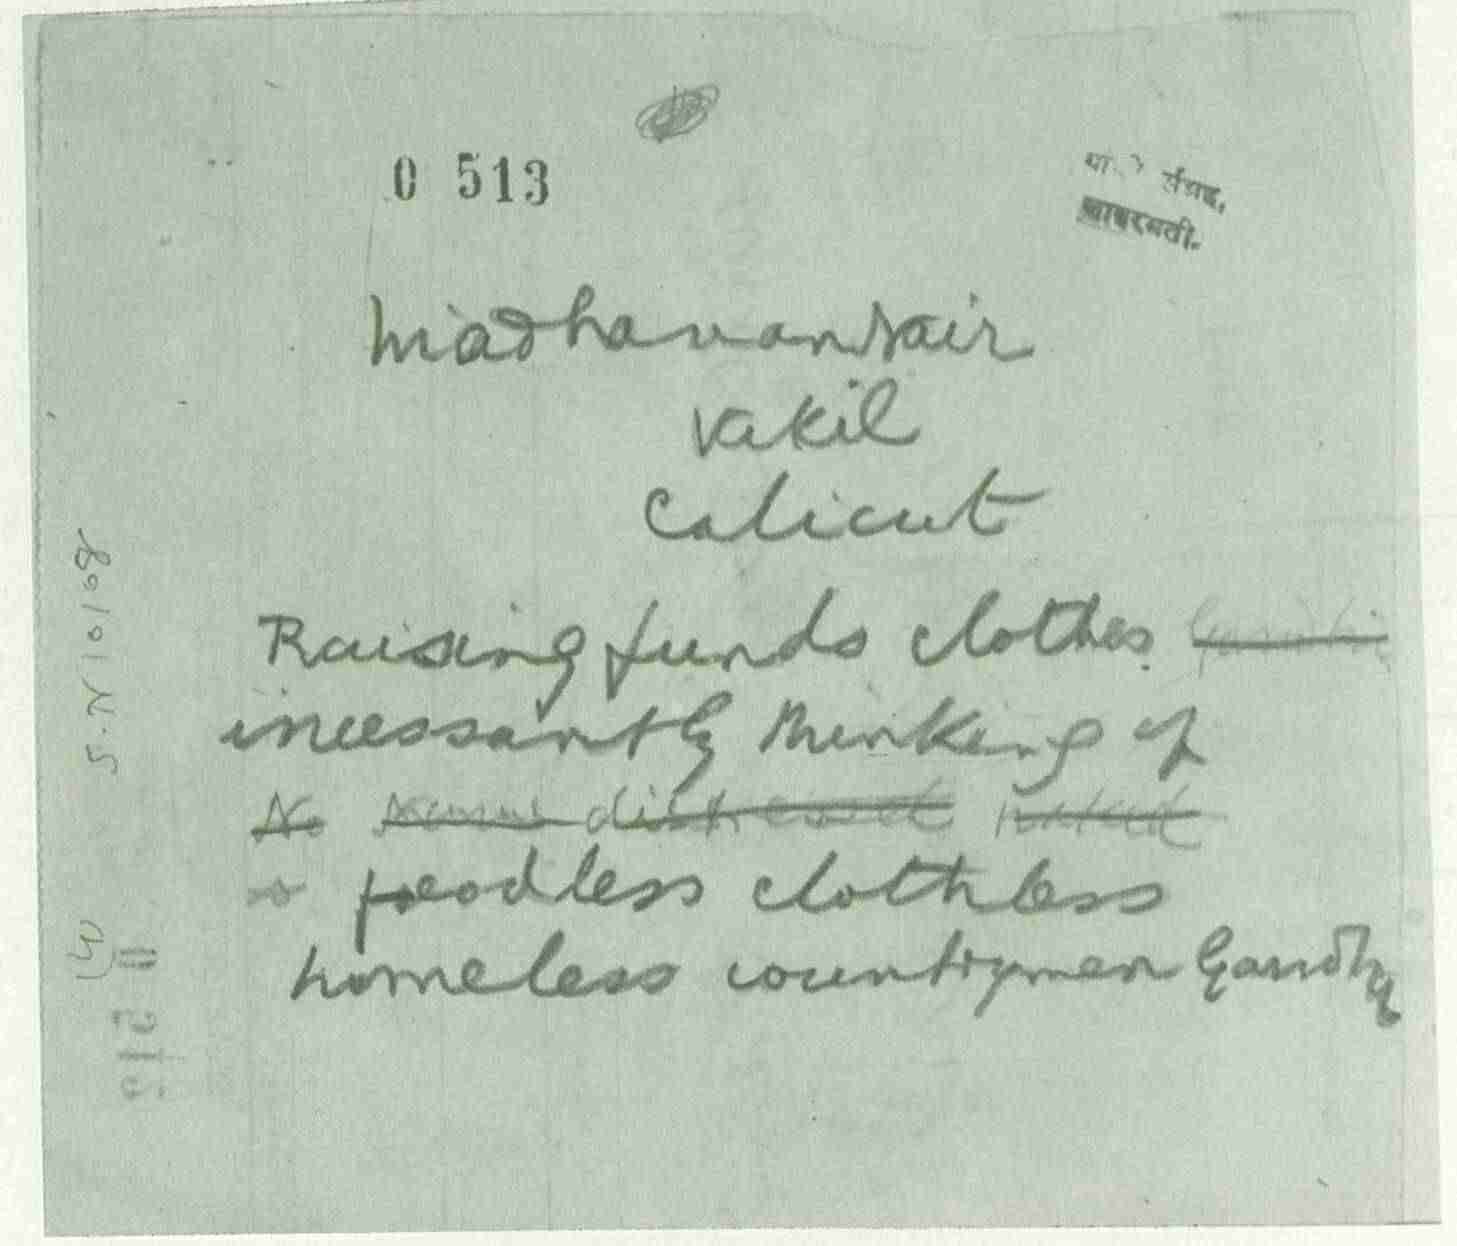 0 513
संग्रह,
साबरमती.
Madhavan Nair
Vakil
Calicut
Raising funds clothes
incessantly thinking of
foodless clothless
homeless countrymen Gandhi
S.N 10108